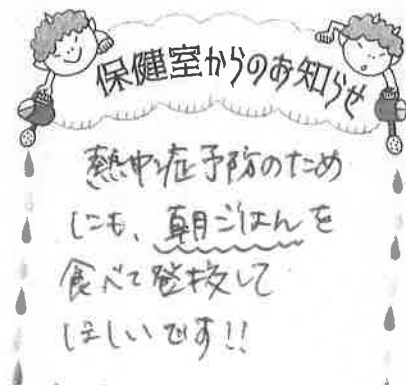 保健室からのお知らせ
熱中症予防のため
にも、朝ごはんを
食べて登校して
ほしいです!!